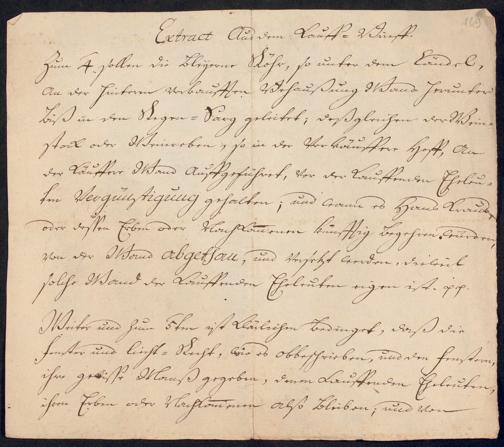 163
Extract Auß dem Kauff-Brieff.
Zum 4. sollen die Bleyerne Röhr, so unter dem Landel,
An der Hintern verkaufften Behaußung Wand herunter
Biß in den Regen-Sarg geleitet, deßgleichen der Wein-
stock oder Weinreben, so in der Verkauffere Hoff, An
der Kauffere Wand Auffgeführet, Vor der Kauffenden Eheleu-
ten Vergünstigung gehalten; und wann es Hans
oder dessen Erben oder Nachkommen künfftig begehren würden,
von der Wand abgethan, und Versetzt werden, dieweil
solche Wand der Kauffenden Eheleuten eigen ist. pp.
Weiter und zum 5ten ist klärlichen Bedinget, daß die
fenster und liecht-Recht, wie es obbeschrieben, und den fenstern,
ihre gewisse Maaß gegeben, denen Kauffenden Eheleuten,
ihren Erben oder Nachkommenen also Bleiben; und von